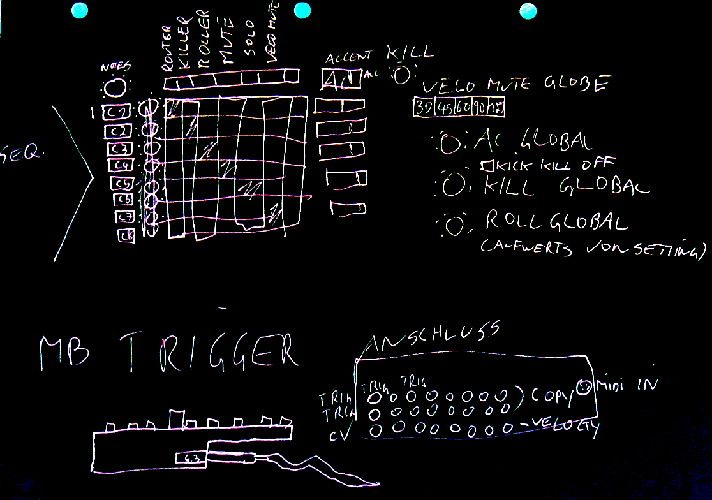 ROUTER
KILLER
ROLLER
MUTE
SOLO
VELO MUTE
NOTES
ACCENT
KILL
AC
AC
VELO MUTE GLOBE
35 45 60 90
1 C2
C3
C4
C5
C6
C7
C8
SEQ.
AC GLOBAL
KICK KILL OFF
KILL GLOBAL
ROLL GLOBAL
(AUFWERTS VON SETTING)
MB TRIGGER
ANSCHLUSS
TRIG TRIG
TRIG
TRIG
CV
) COPY
MIDI IN
-VELOCITY
6.3